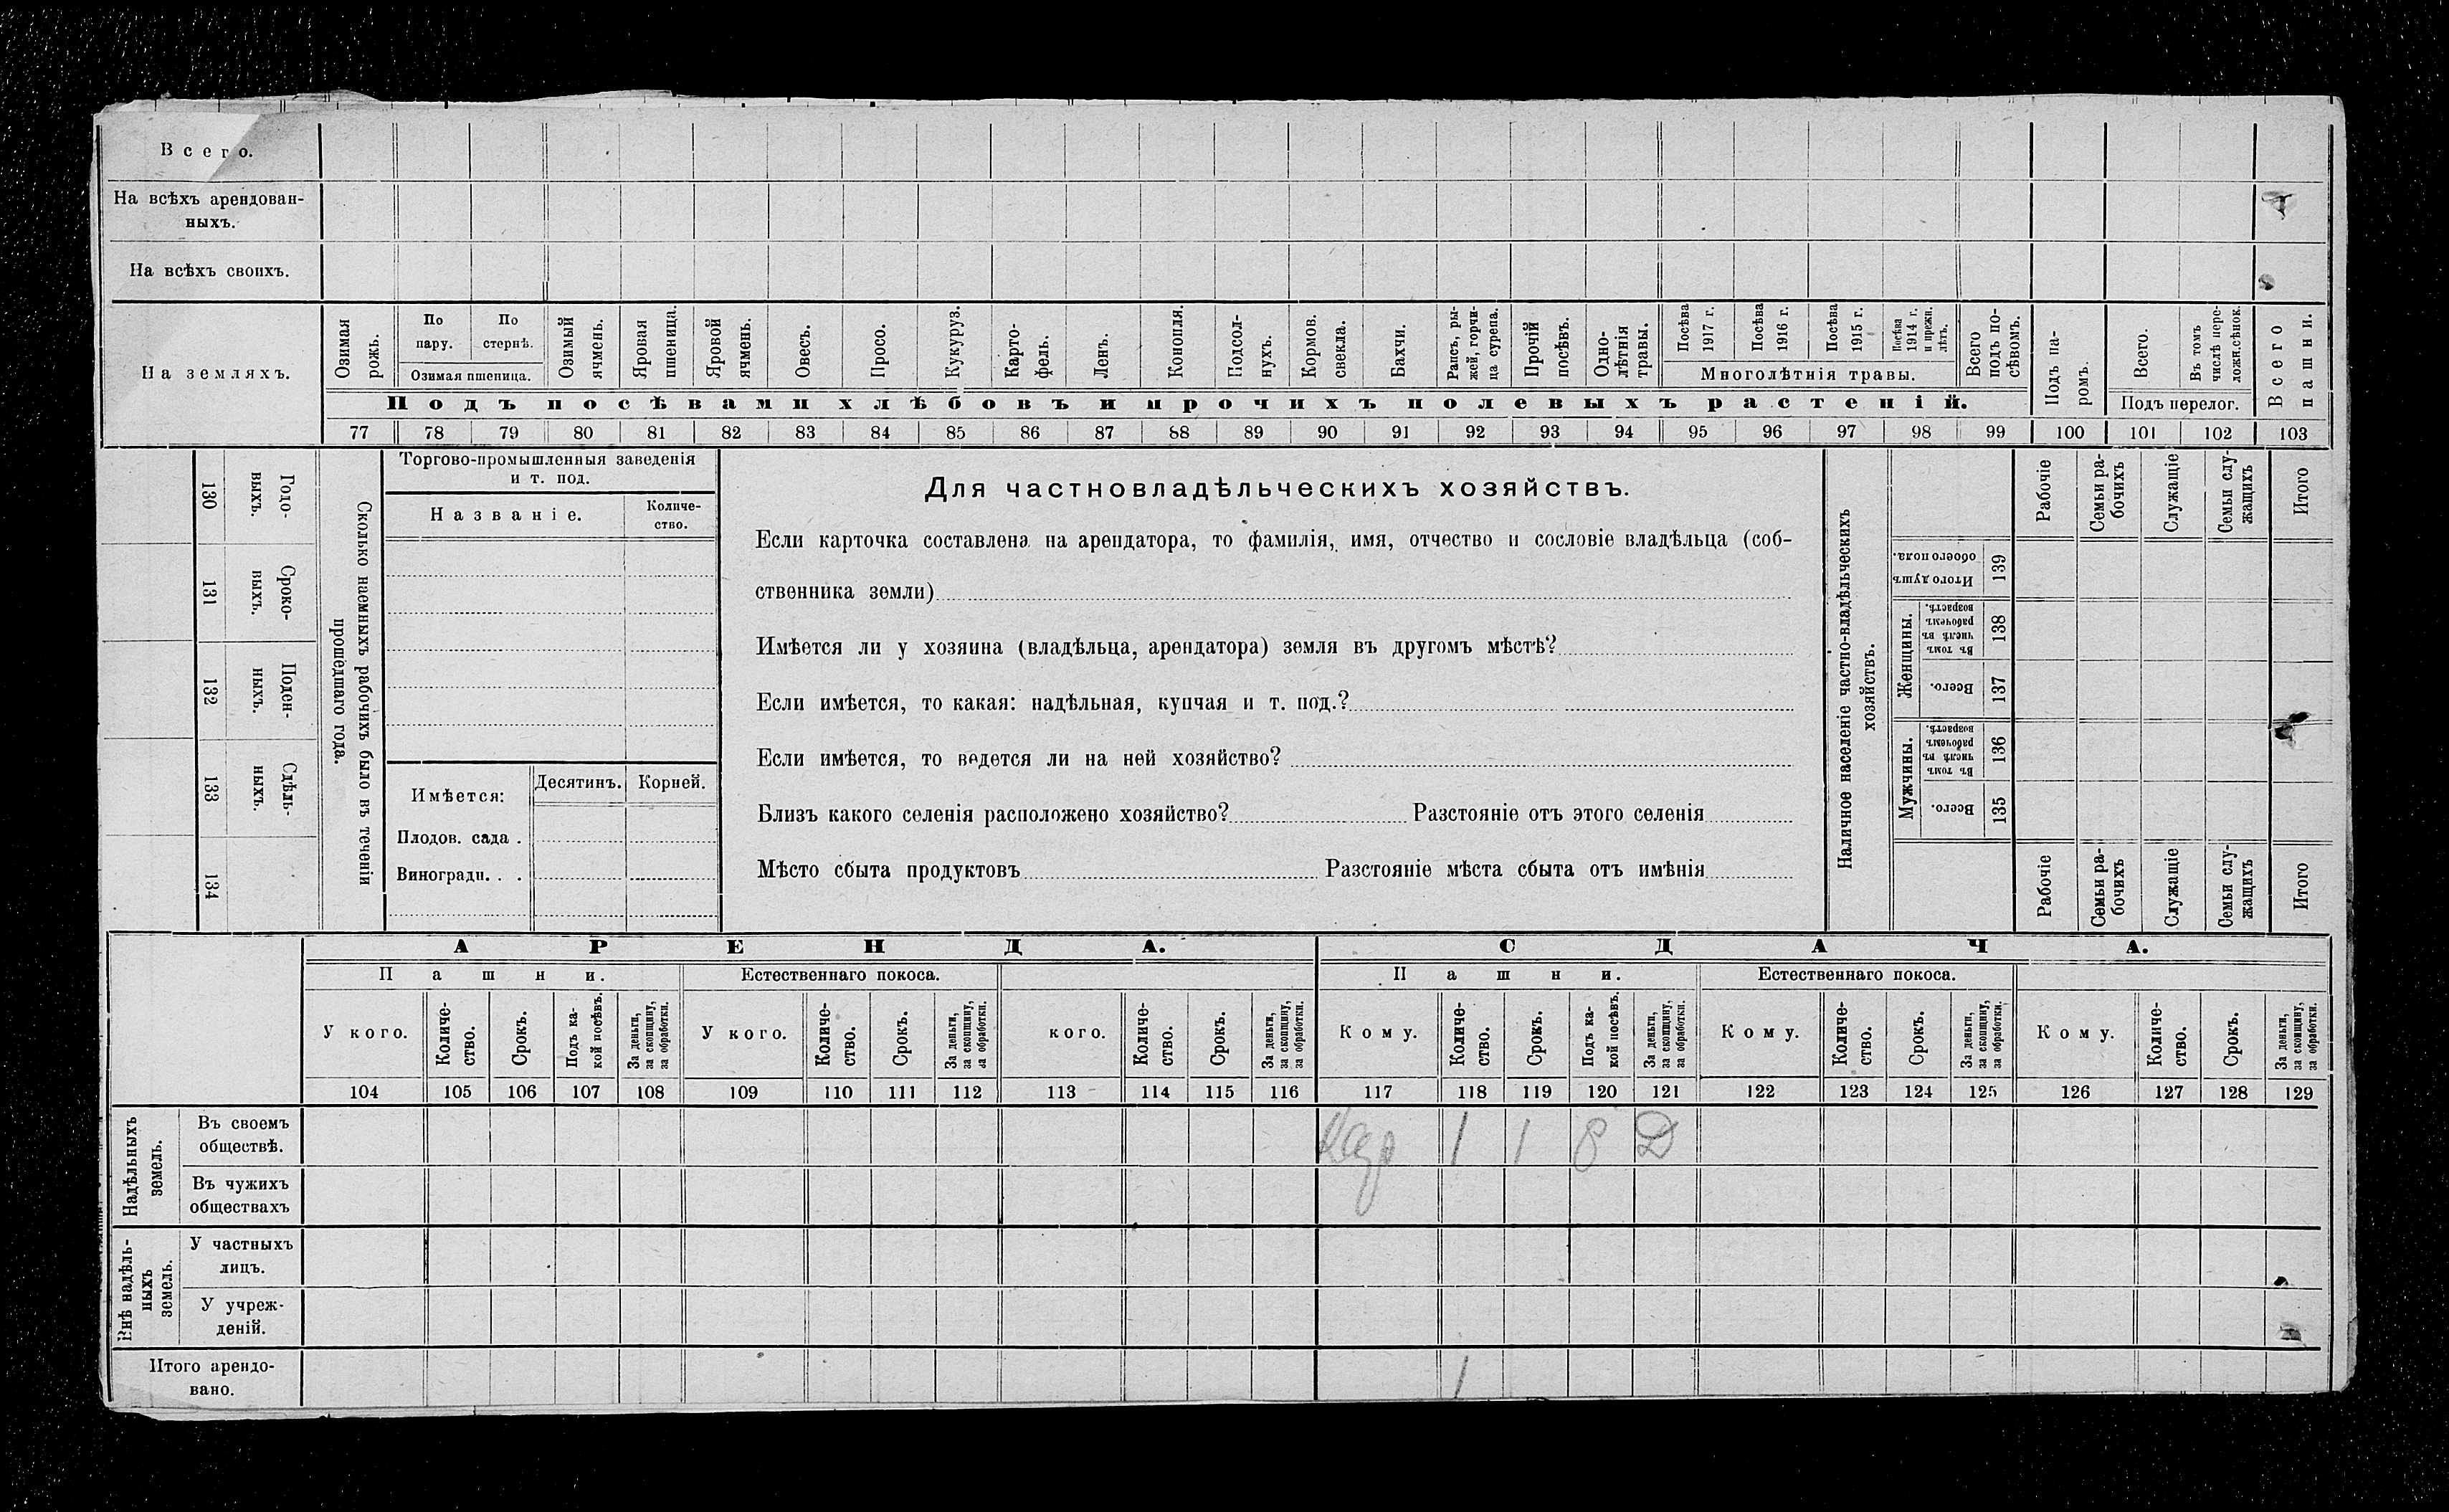 Всего.
На всѣхъ арендован-
ныхъ.
На всѣхъ своихъ.
На земляхъ.
Озимая рожь.
По пару.
По стернѣ.
Озимая пшеница.
Озимый ячмень.
Яровая пшеница.
Яровой ячмень.
Овесъ.
Просо.
Кукуруз.
Карто-
фель.
Ленъ.
Конопля.
Подсол-
нухъ.
Кормов. свекла.
Бахчи.
Рапсъ, ры-
жей, горчи-
ца сурепа.
Прочій посѣвъ.
Одно-
лѣтнія травы.
Посѣва 1917 г.
Посѣва 1916 г.
Посѣва 1915 г.
Посѣва 1914 г. и прежн. лѣтъ.
Многолѣтнія травы.
Всего подъ по-
сѣвомъ.
Подъ па-
ромъ.
Всего.
Въ томъ числѣ пере-
ложн.сѣнок.
Подъ перелог.
Всего пашни.
Подъ посѣвами хлѣбовъ и прочихъ полевыхъ растеній.
77 78 79 80 81 82 83 84 85 86 87 88 89 90 91 92 93 94 95 96 97 98 99 100 101 102 103
Сколько наемныхъ рабочихъ было въ теченіи
прошедшаго года.
Годо-
выхъ.
130
Сроко-
выхъ.
131
Поден-
ныхъ.
132
Сдѣль-
ныхъ.
133
134
Торгово-промышленныя заведенія
и т. под.
Названіе.
Количе-
ство.
Имѣется:
Десятинъ.
Корней.
Плодов. сада .
Виноградн. . .
Для частновладѣльческихъ хозяйствъ.
Если карточка составлена на арендатора, то фамилія, имя, отчество и сословіе владѣльца (соб-
ственника земли)
Имѣется ли у хозяина (владѣльца, арендатора) земля въ другомъ мѣстѣ?
Если имѣется, то какая: надѣльная, купчая и т. под.?
Если имѣется, то ведется ли на ней хозяйство?
Близъ какого селенія расположено хозяйство? Разстояніе отъ этого селенія
Мѣсто сбыта продуктовъ Разстояніе мѣста сбыта отъ имѣнія
Наличное населеніе частно-владѣльческихъ
хозяйствъ.
Рабочіе
Семьи ра-
бочихъ
Служащіе
Семьи слу-
жащихъ
Итого
Итого душъ обоего пола.
139
Женщины.
Въ томъ числѣ въ рабочемъ возрастѣ.
138
Всего.
137
Мужчины.
Въ томъ числѣ въ рабочемъ возрастѣ.
136
Всего.
135
Рабочіе
Семьи ра-
бочихъ
Служащіе
Семьи слу-
жащихъ
Итого
АРЕНДА. СДАЧА.
Пашни. Естественнаго покоса. Пашни. Естественнаго покоса.
У кого.
Количе-
ство.
Срокъ.
Подъ ка-
кой посѣвъ.
За деньги,
за скопщину,
за обработки.
У кого.
Количе-
ство.
Срокъ.
За деньги,
за скопщину,
за обработки.
кого.
Количе-
ство.
Срокъ.
За деньги,
за скопщину,
за обработки.
Кому.
Количе-
ство.
Срокъ.
Подъ ка-
кой посѣвъ.
За деньги,
за скопщину,
за обработки.
Кому.
Количе-
ство.
Срокъ.
За деньги,
за скопщину,
за обработки.
Кому.
Количе-
ство.
Срокъ.
За деньги,
за скопщину,
за обработки.
104 105 106 107 108 109 110 111 112 113 114 115 116 117 118 119 120 121 122 123 124 125 126 127 128 129
Надѣльныхъ
земель.
Въ своемъ
обществѣ.
1 1 Д
Въ чужихъ
обществахъ
Внѣ надѣль-
ныхъ
земель.
У частныхъ
лицъ.
У учреж-
деній.
Итого арендо-
вано.
1